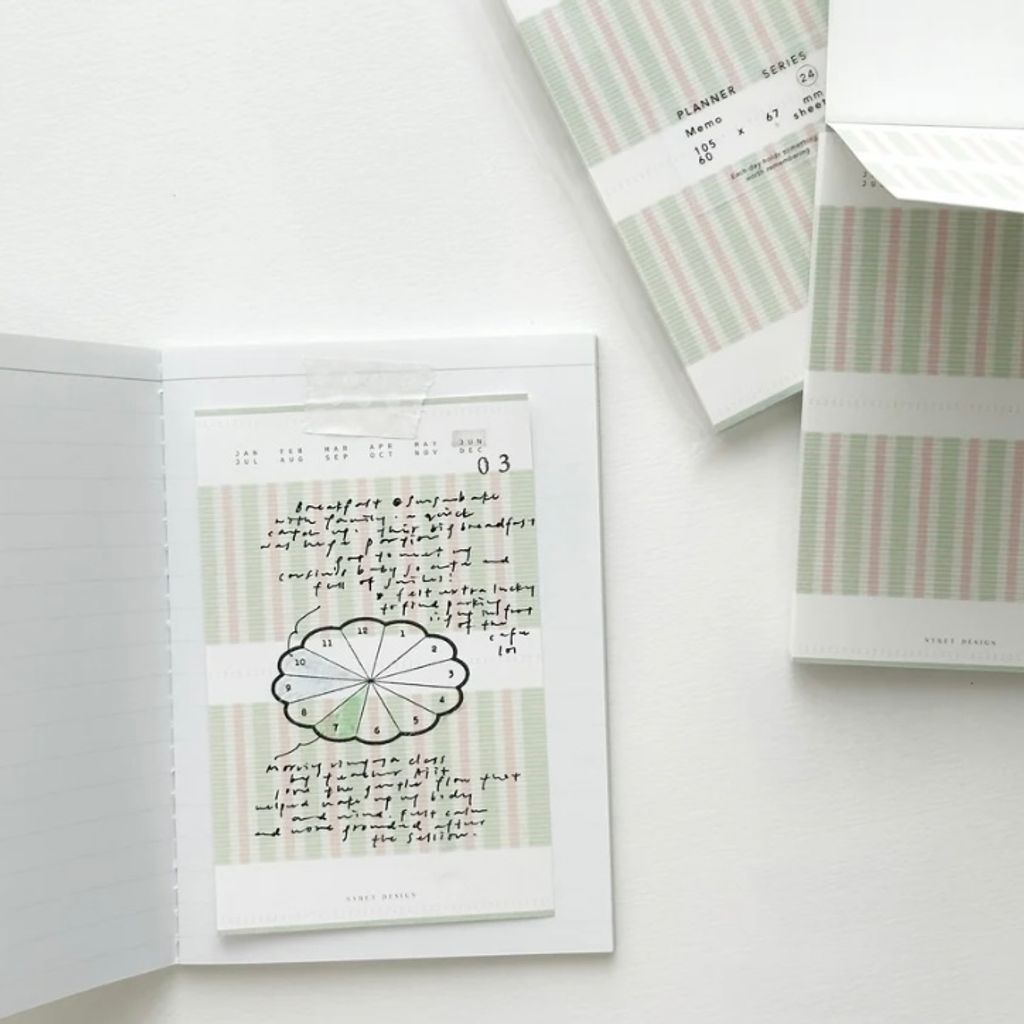 PLANNER SERIES
24
Memo
105 x 67 mm
60 sheets
Each day holds something
worth remembering
JAN FEB MAR APR MAY JUN
JUL AUG SEP OCT NOV DEC
03
Breakfast
with family. a quick
catch up. this big breakfast
was huge portion
got to meet my
cousin's baby so cute and
full of smiles!
felt extra lucky
to find parking
in front
of the
cafe
lol
12
1
2
3
4
5
6
7
8
9
10
11
Morning vinyasa class
by teacher
love the gentle flow that
helped wake up my body
and mind. felt calm
and more grounded after
the session.
NYRET DESIGN
NYRET DESIGN